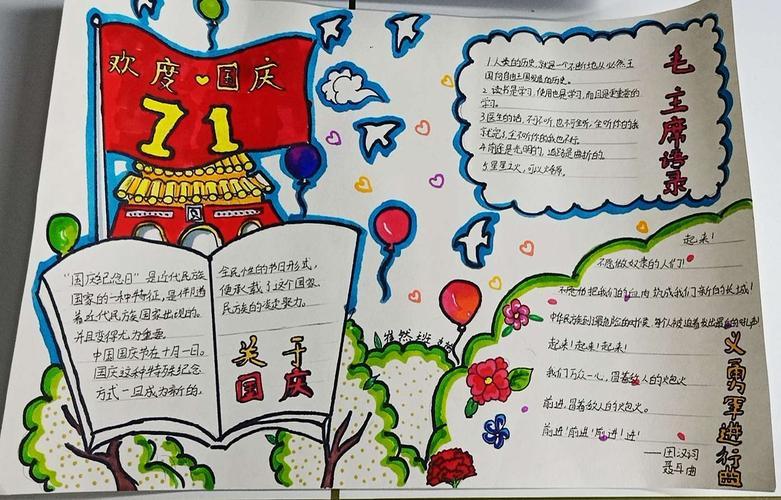 欢度国庆
71
“国庆纪念日”是近代民族
国家的一种特征，是伴随
着近代民族国家出现的。
并且变得尤为重要。
中国国庆节在十月一日。
国庆这种特殊纪念
方式一旦成为新的，
全民性的节日形式，
便承载了这个国家、
民族的凝聚力。
关于
国庆
毛主席语录
1.人类的历史，就是一个不断地从必然王
国向自由王国发展的历史。
2.读书是学习，使用也是学习，而且是更重要的
学习。
3.医生的话，不可不听，也不可全听，全听你的我
就完了，全不听你的我也不行。
4.前途是光明的，道路是曲折的。
5.星星之火，可以燎原。
起来！
不愿做奴隶的人们！
我们的血肉筑成我们新的长城！
中华民族到最危险的时候，每个人被迫着发出最后的吼声！
起来！起来！起来！
我们万众一心，冒着敌人的炮火
前进，冒着敌人的炮火。
前进！前进！前进！进！
——田汉词
聂耳曲
义勇军进行曲